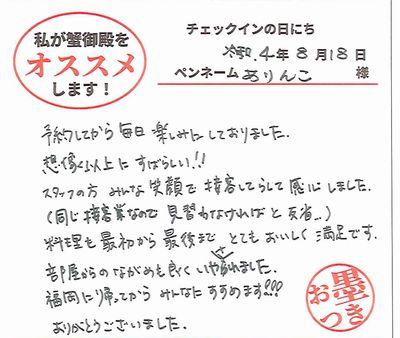 私が蟹御殿を
オススメ
します!
チェックインの日にち
令和.4年8月18日
ペンネーム ありんこ 様
予約してから毎日楽しみにしておりました.
想像以上にすばらしい!!
スタッフの方 みんな笑顔で接客してらして感心しました.
(同じ接客業なので見習わなければと反省..)
料理も最初から最後までとてもおいしく満足です.
部屋からのながめも良くいやされました.
福岡に帰ってからみんなにすすめます!!!
ありがとうございました.
お墨つき